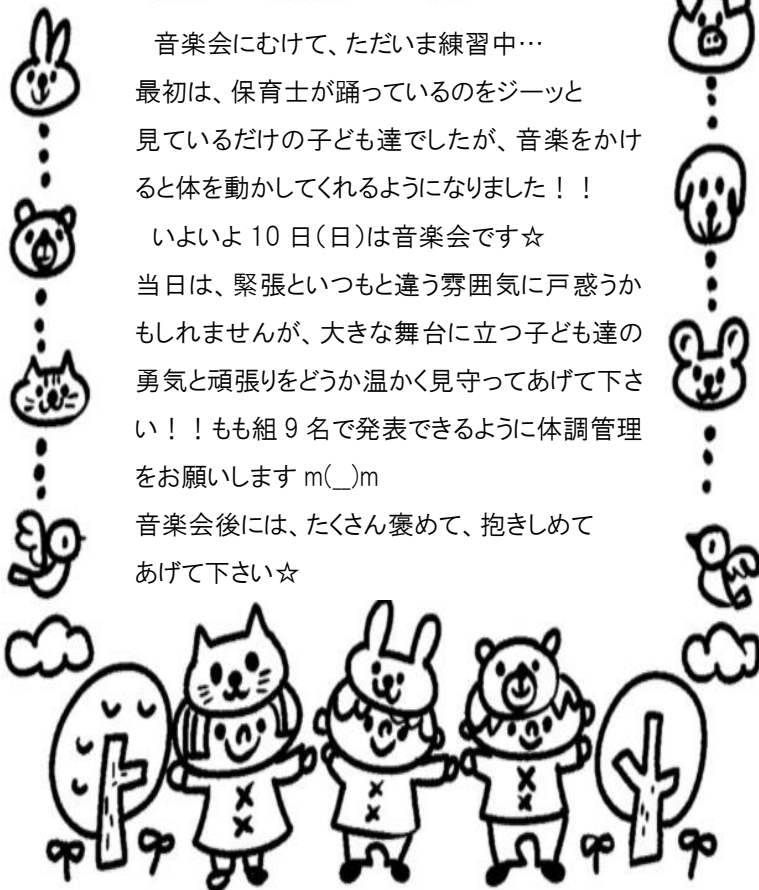 音楽会にむけて、ただいま練習中…
最初は、保育士が踊っているのをジーッと
見ているだけの子ども達でしたが、音楽をかけ
ると体を動かしてくれるようになりました！！
いよいよ 10 日（日）は音楽会です☆
当日は、緊張といつもと違う雰囲気に戸惑うか
もしれませんが、大きな舞台に立つ子ども達の
勇気と頑張りをどうか温かく見守ってあげて下さ
い！！もも組 9 名で発表できるように体調管理
をお願いします m(__)m
音楽会後には、たくさん褒めて、抱きしめて
あげて下さい☆